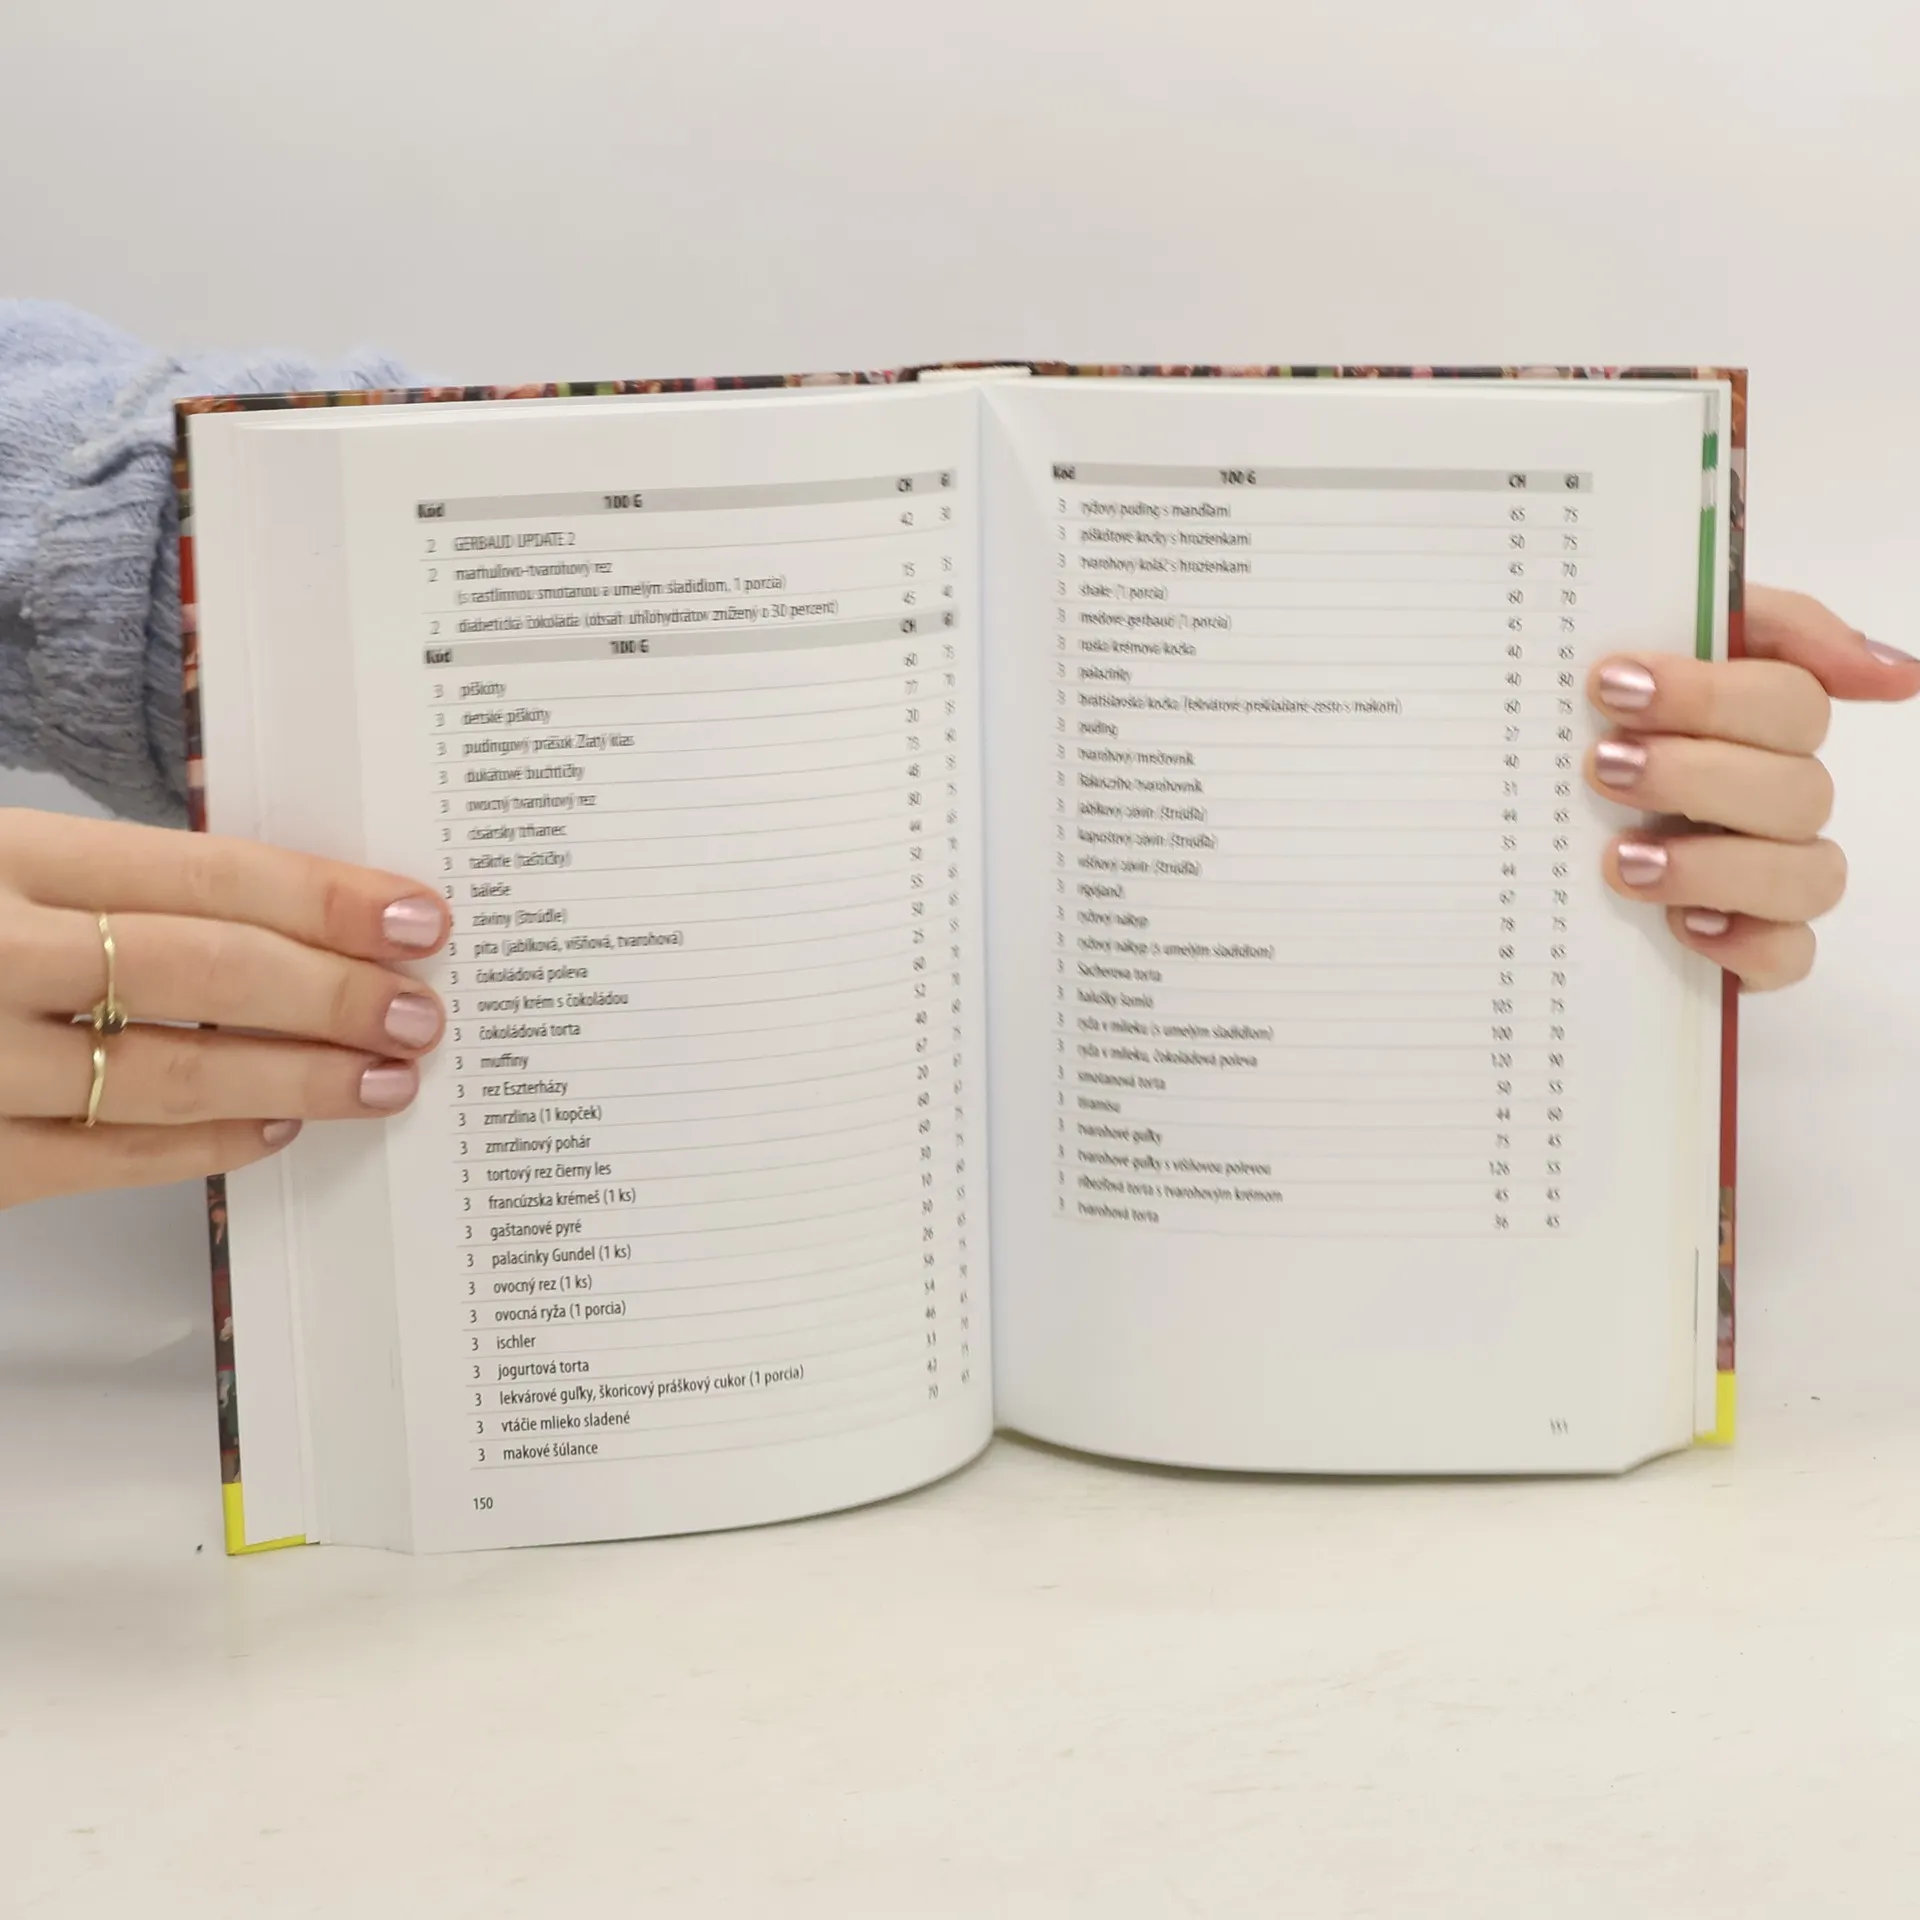 Kód 100 G CH GI
2 GERBAUD UPDATE 2 42 30
2 marhuľovo-tvarohový rez
(s rastlinnou smotanou a umelým sladidlom, 1 porcia) 15 35
2 diabetická čokoláda (obsah uhľohydrátov znížený o 30 percent) 45 40
Kód 100 G CH GI
3 piškóty 60
3 detské piškóty 77 70
3 pudingový prášok Zlatý klas 30
3 dukátové buchtičky 75
3 ovocný tvarohový rez 48
3 cisársky trhanec 80
3 taškie (taštičky) 44
3 báleše 52
záviny (štrúdle) 55
3 pita (jablková, višňová, tvarohová) 52
3 čokoládová poleva 25
3 ovocný krém s čokoládou 60
3 čokoládová torta 52
3 muffiny 40
3 rez Eszterházy 67
3 zmrzlina (1 kopček) 20
3 zmrzlinový pohár 60
3 tortový rez čierny les 60
3 francúzska krémeš (1 ks) 30
3 gaštanové pyré 10
3 palacinky Gundel (1 ks) 30
3 ovocný rez (1 ks) 26
3 ovocná ryža (1 porcia)
3 ischler 54
3 jogurtová torta 46
3 lekvárové guľky, škoricový práškový cukor (1 porcia)
3 vtáčie mlieko sladené 42
3 makové šúlance 70
150
Kód 100 G CH GI
3 ryžový puding s mandľami 65 75
3 piškótové kocky s hrozienkami 50 75
3 tvarohový koláč s hrozienkami 45 70
3 shake (1 porcia) 60 70
3 medové gerbaud (1 porcia) 45 75
3 ruská krémová kocka 40 65
3 palacinky 40 80
3 bratislavská kocka (lekvárové prekladané cesto s makom) 60 75
3 puding 27 40
3 tvarohový mrežovník 40 65
3 Rákócziho tvarohovník 31 65
3 jablkový závin (štrúdľa) 44 65
3 kapustový závin (štrúdľa) 35 65
3 višňový závin (štrúdľa) 44 65
3 rigójanči 67 70
3 ryžový nákyp 78 75
3 ryžový nákyp (s umelým sladidlom) 68 65
3 Sacherova torta 35 70
3 halušky šomló 105 75
3 ryža v mlieku (s umelým sladidlom) 100 70
3 ryža v mlieku, čokoládová poleva 120 90
3 smotanová torta 50 55
3 tiramisu 44 60
3 tvarohové guľky 75 45
3 tvarohové guľky s višňovou polevou 126 55
3 ríbezľová torta s tvarohovým krémom 45 45
3 tvarohová torta 36 45
151